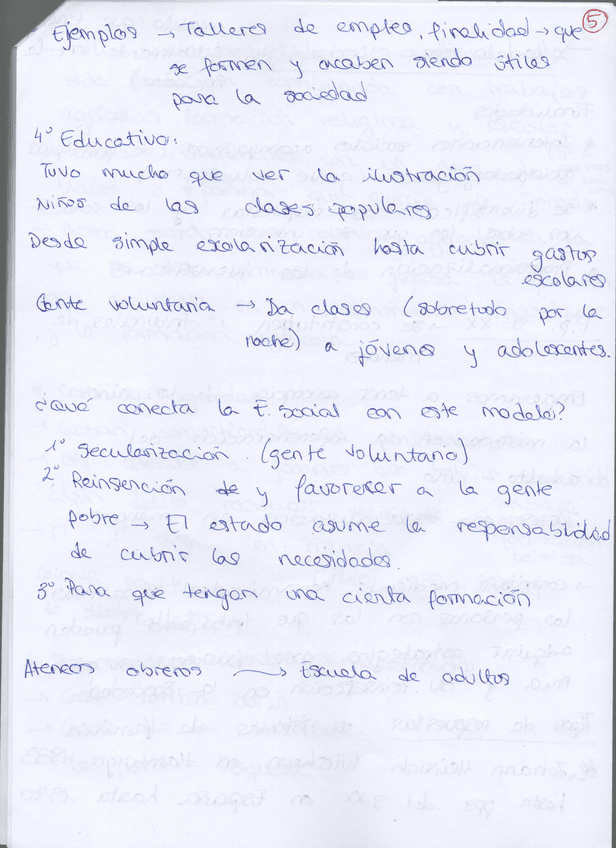 5
Ejemplos → Talleres de empleo, finalidad → que
se formen y acaben siendo útiles
para la sociedad
4º Educativo:
Tuvo mucho que ver la ilustración
Niños de las clases populares
Desde simple escolarización hasta cubrir gastos
escolares
Gente voluntaria → Da clases (sobretodo por la
noche) a jóvenes y adolescentes.
¿Qué conecta la E. Social con este modelo?
1º Secularización (gente voluntario)
2º Reinserción de y favorecer a la gente
pobre → El estado asume la responsabilidad
de cubrir las necesidades.
3º Para que tengan una cierta formación
Ateneos obreros → Escuela de adultos